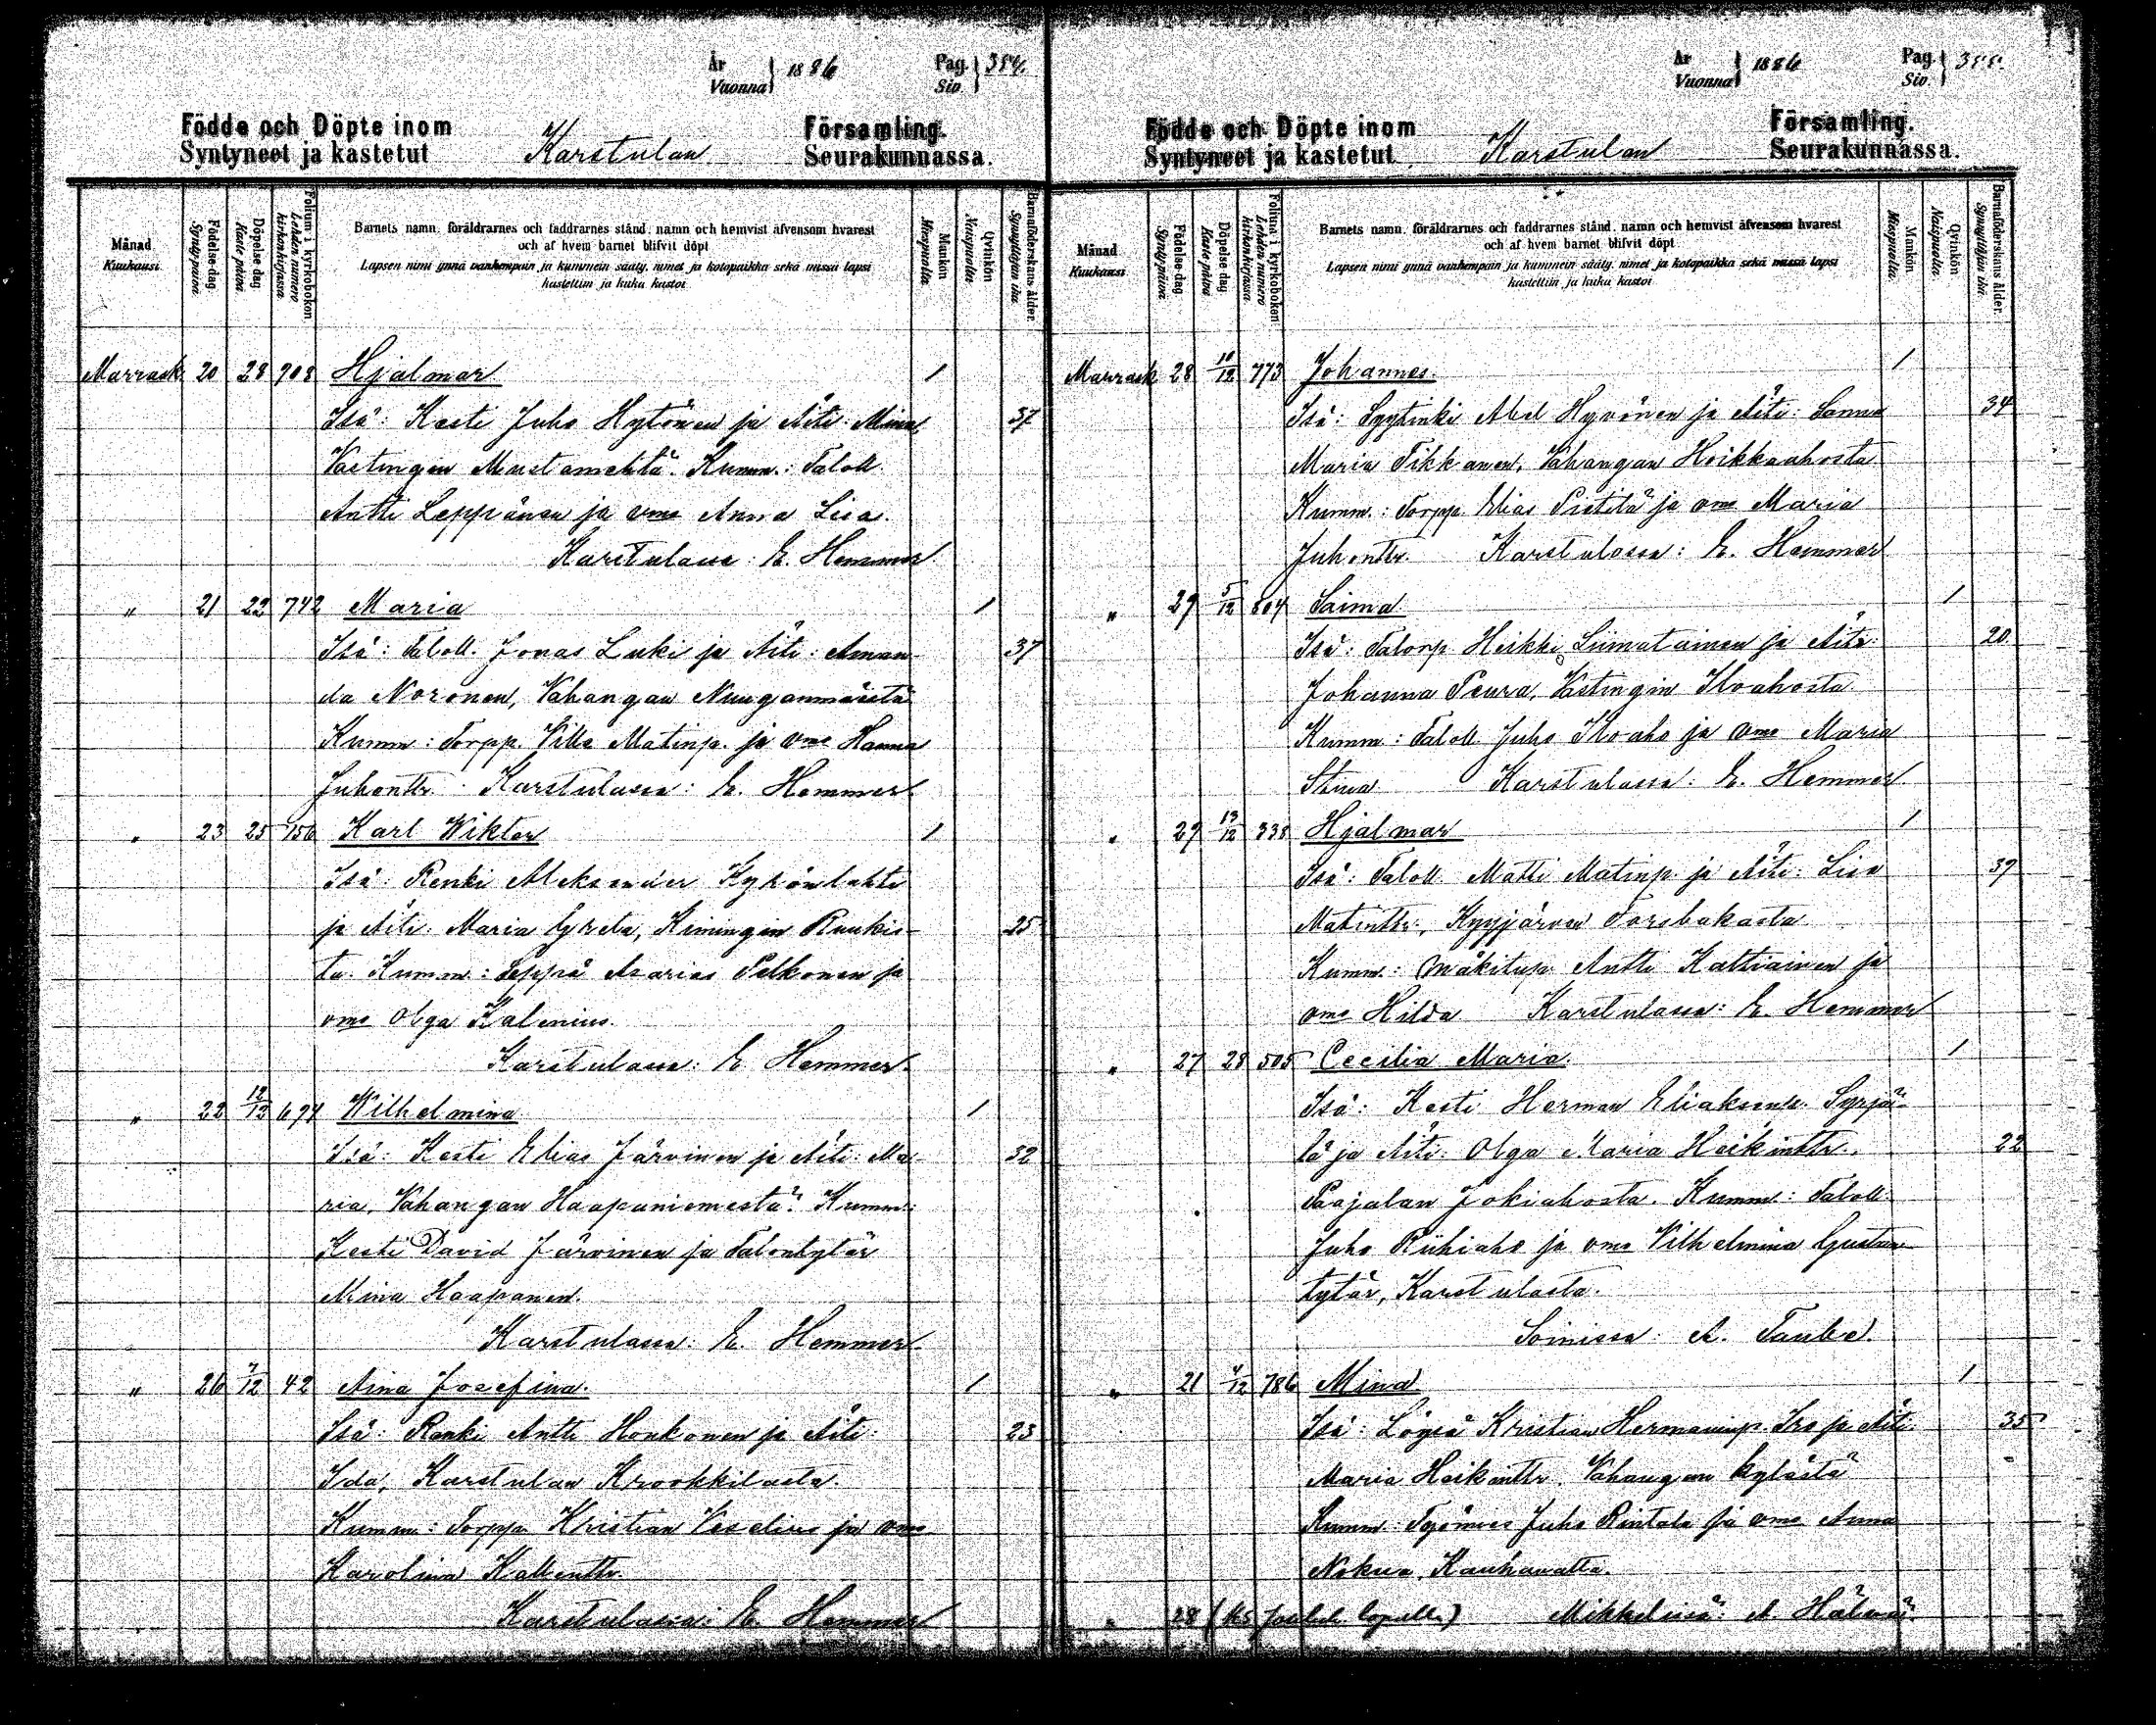 År
Vuonna } 1886
Pag.
Siv. } 354.
Födde och Döpte inom
Syntyneet ja kastetut
Karstulan
Församling.
Seurakunnassa.
Månad
Kuukausi
Födelse dag
Syntypäivä
Döpelse dag
Kaste päivä
Folium i kyrkoboken
Lehden numero kirkonkirjassa
Barnets namn, föräldrarnes och faddrarnes stånd, namn och hemvist äfvensom hvarest
och af hvem barnet blifvit döpt
Lapsen nimi ynnä vanhempain ja kummein sääty, nimet ja kotopaikka sekä missä lapsi
kastettiin ja kuka kastoi
Mankön
Miespuolia
Qvinkön
Naispuolia
Barnaföderskans ålder.
Synnyttäjän ikä
Marrask 20 28 708 Hjalmar 1
Isä: Kesti Juho Hytönen ja Äiti: Mina 37
Vastingin Mustamehtä. Kumm.: Taloll.
Antti Leppänen ja vmo Anna Lisa.
Karstulassa: E. Hemmer.
" 21 22 742 Maria 1
Isä: Taloll. Jonas Luki ja Äiti: Aman- 37
da Noronen, Vahangan
Kumm: Torpp. Ville Matinp. ja vmo Hanna
Juhontr. Karstulassa: E. Hemmer
" 23 25 156 Karl Wiktor 1
Isä: Renki Aleksander
ja Äiti: Maria Greta, Kimingin Ruukis- 25
ta. Kumm.: Seppä Asarias Pelkonen ja
vmo Olga Kalenius.
Karstulassa: E. Hemmer.
" 22 12/12 694 Wilhelmina 1
Isä: Kesti Elias Järvinen ja Äiti: Ma- 32
ria, Vahangan Haapaniemestä. Kumm:
Kesti David Järvinen ja Talontytär
Mina Haapanen.
Karstulassa: E. Hemmer.
" 26 7/12 42 Aina Josefina. 1
Isä: Renki Antti Honkonen ja Äiti: 23
Ida, Karstulan Krookkilasta.
Kumm: Torpp. Kristian Veselius ja vmo
Karolina Kallentr.
Karstulassa: E. Hemmer
År
Vuonna } 1886
Pag.
Siv. } 355.
Födde och Döpte inom
Syntyneet ja kastetut
Karstulan
Församling.
Seurakunnassa.
Månad
Kuukausi
Födelse dag
Syntypäivä
Döpelse dag
Kaste päivä
Folium i kyrkoboken
Lehden numero kirkonkirjassa
Barnets namn, föräldrarnes och faddrarnes stånd, namn och hemvist äfvensom hvarest
och af hvem barnet blifvit döpt
Lapsen nimi ynnä vanhempain ja kummein sääty, nimet ja kotopaikka sekä missä lapsi
kastettiin ja kuka kastoi
Mankön
Miespuolia
Qvinkön
Naispuolia
Barnaföderskans ålder.
Synnyttäjän ikä
Marrask 28 10/12 773 Johannes. 1
Isä: Syytinki Abel Hyvönen ja Äiti: Sanna 34
Maria Tikkanen, Vahangan Heikkaahosta
Kumm.: Torpp. Elias Pietilä ja vmo Maria
Juhontr. Karstulassa: E. Hemmer
" 29 5/12 804 Saima 1
Isä: Talonp. Heikki Liimatainen ja Äiti: 20
Johanna Peura, Vastingin Iloahosta
Kumm: Taloll. Juho Iloaho ja vmo Maria
Stina Karstulassa: E. Hemmer
" 29 13/12 338 Hjalmar 1
Isä: Taloll. Matti Matinp. ja Äiti: Lisa 39
Matintr., Kyyjärven Forsbakasta
Kumm: Mäkitup. Antti Kattiainen ja
vmo Hilda Karstulassa: E. Hemmer
" 27 28 505 Cecilia Maria. 1
Isä: Kesti Herman Eliaksenp. Syrjä-
lä ja Äiti: Olga Maria Heikintr., 22
Paajalan Jokiahosta. Kumm: Taloll.
Juho Riihiaho ja vmo Vilhelmina Gustaan
tytär, Karstulasta.
Soinissa: A. Taube.
" 21 4/12 786 Mina 1
Isä: Kristian Hermaninp. Iso ja Äiti 35
Maria Heikintr. Vahangan kylästä
Kumm: Työmies Juho Rintala ja vmo Anna
Nokua, Kauhavalta.
" 28 (ks. lopulla) Mikkelissä: A.